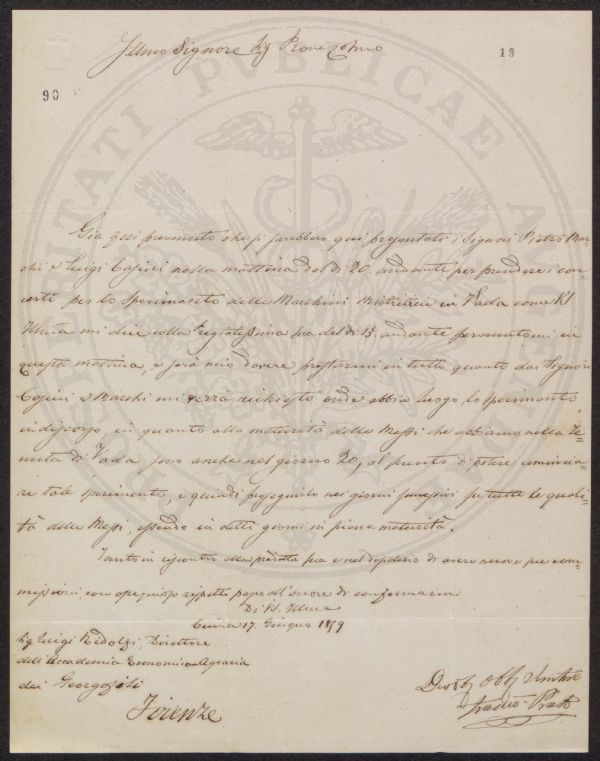 Illmo Signore Sig Prone Colmo
19
90
PROSPERITATI PUBLICAE AUGENDAE
Già qui prevenuto che si sarebbero qui presentati i Signori Pietro Bar-
chi e Luigi Cosini nella mattina del dì 20. andante per prendere i con-
certi per lo Sperimento delle Macchine Mietitrici in Vada come VS
Illma mi dice colla pregiatissima sua del dì 15. andante pervenutami in
questa mattina, e sarà mio dovere prestarmi in tutto quanto dai Signori
Cosini e Barchi mi verrà richiesto onde abbia luogo lo sperimento
in discorso in quanto alla maturità delle Messi che abbiamo nella Te-
nuta di Vada sono anche nel giorno 20, al punto di potere comincia-
re tale sperimento, e quindi proseguirlo nei giorni successivi su tutte le quali-
tà delle Messi, essendo in detti giorni in piena maturità.
Tanto in riscontro alla predetta sua e nel desiderio di avere nuove sue com-
missioni, con ossequioso rispetto passo all'onore di confermarmi
Di VS. Illma
17. Giugno 1859
Sig Luigi Ridolfi, Direttore
dell'Accademia Economico-Agraria
dei Georgofili
Firenze
Devot Obb Servitore